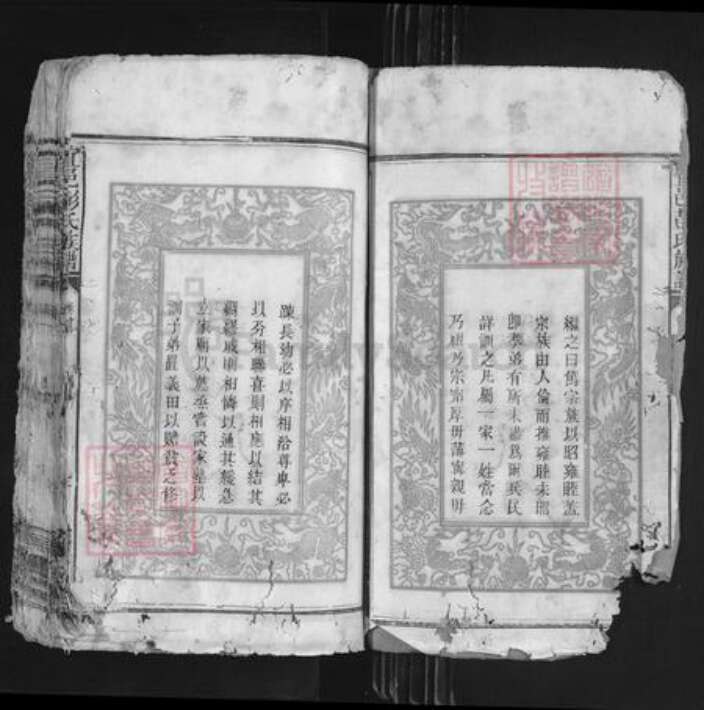 編之曰篤宗族以昭雍睦蓋
宗族由人倫而推雍睦未昭
即孝弟有所未盡爲爾兵民
詳訓之凡屬一家一姓當念
乃祖乃宗寧厚毋薄寧親毋
疎長幼必以序相洽尊卑必
以分相聯喜則相慶以結其
綢繆戚則相憐以通其緩急
立家廟以薦烝嘗設家塾以
課子弟置義田以贍貧乏修
氏族譜